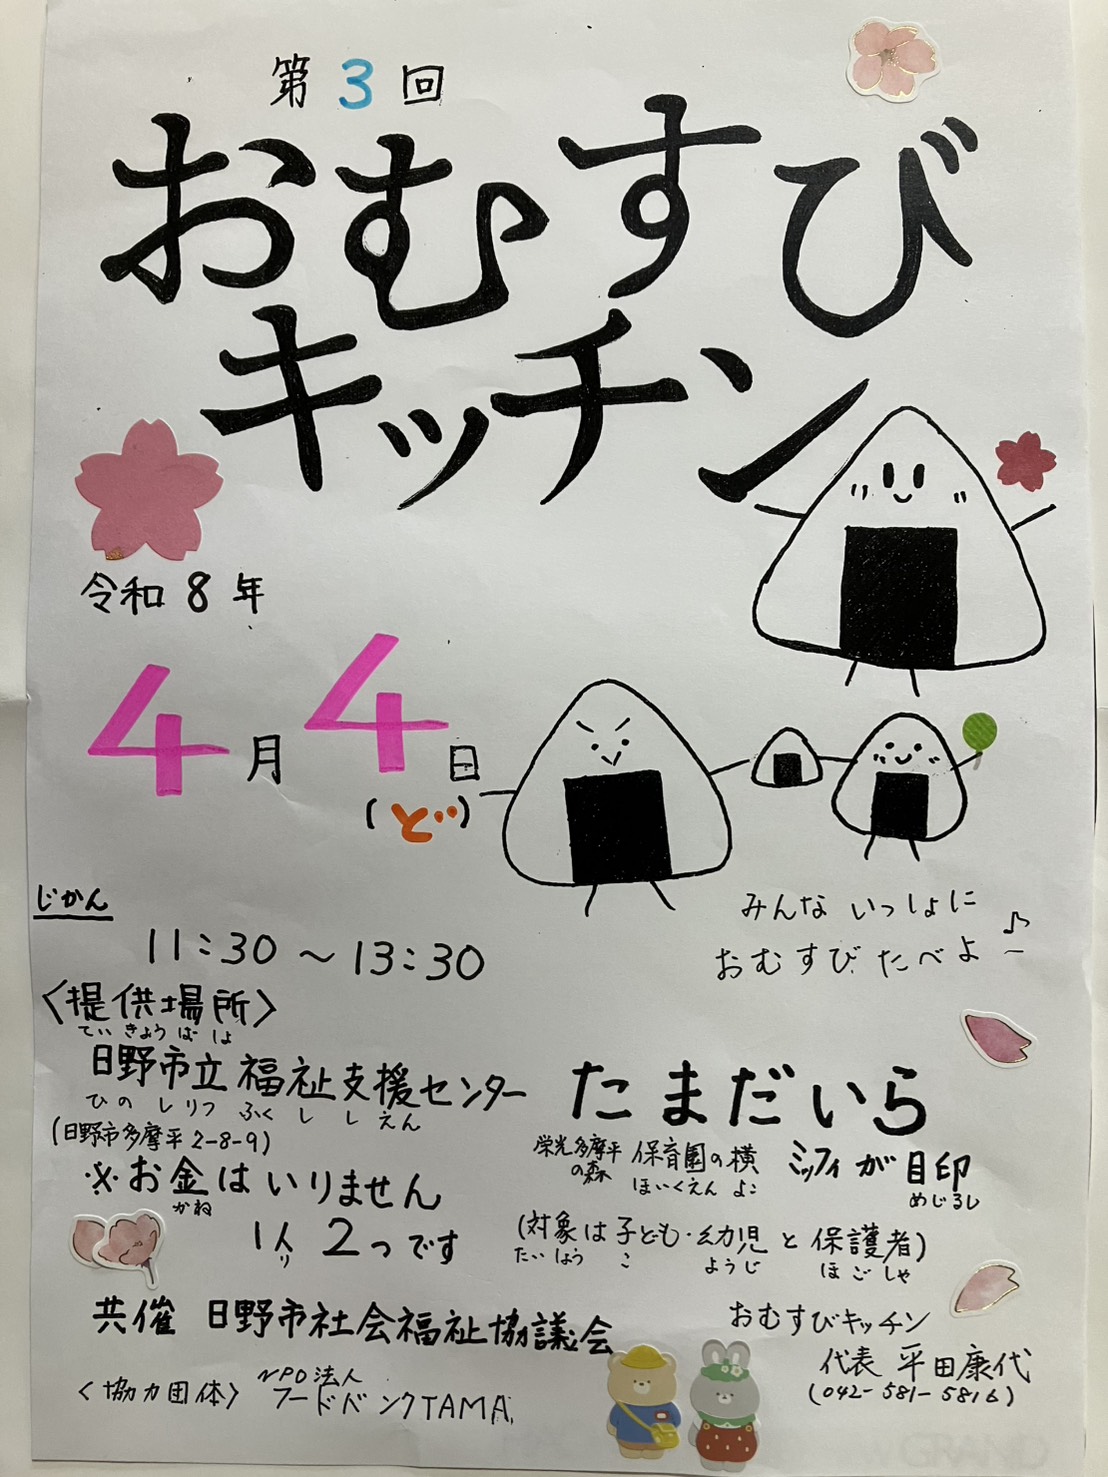 第3回
おむすび
キッチン
令和8年
4月4日
(ど)
じかん
11:30～13:30
みんな いっしょに
おむすび たべよ～♪
〈提供場所〉
ていきょうばしょ
日野市立 福祉支援センター
ひのしりつ ふくししえん
(日野市多摩平2-8-9)
たまだいら
栄光多摩平の森 保育園の横 ミッフィが目印
ほいくえん よこ めじるし
※お金はいりません
かね
1人 2つです
り
(対象は子ども・幼児と保護者)
たいしょう こ ようじ ほごしゃ
共催 日野市社会福祉協議会
〈協力団体〉 NPO法人
フードバンクTAMA
おむすびキッチン
代表 平田康代
(042-581-5816)